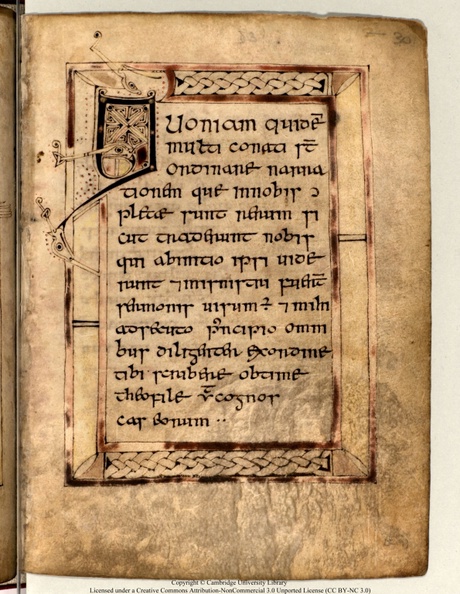 30
Quoniam quidē
multi conati st̄
ordinare narra
tionem que innobis ɔ
pletę sunt rerum si
cut traderunt nobis
qui abinitio ipsi uide
runt ⁊ ministri fuer̄
sermonis uisum ÷ ⁊ mihi
adsecuto p̄ncipio omni
bus diligenter exordine
tibi scribere obtime
theofile v̄ cognos
cas eorum ··
Copyright © Cambridge University Library
Licensed under a Creative Commons Attribution-NonCommercial 3.0 Unported License (CC BY-NC 3.0)